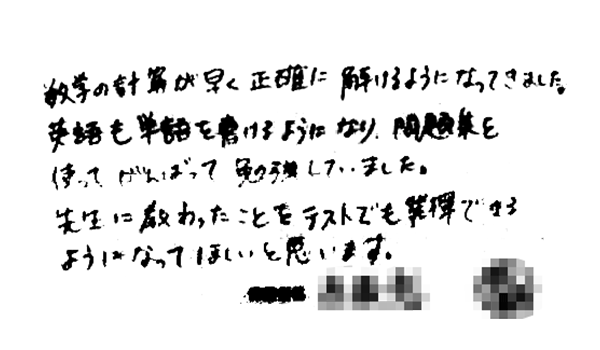 数学の計算が早く正確に解けるようになってきました。
英語も単語を書けるようになり、問題集を
使ってがんばって勉強していました。
先生に教わったことをテストでも発揮できる
ようになってほしいと思います。